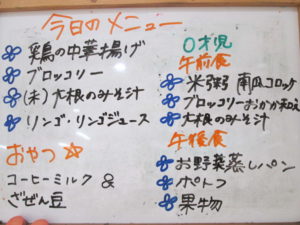 今日のメニュー
鶏の中華揚げ
ブロッコリー
(未)大根のみそ汁
リンゴ・リンゴジュース
おやつ☆
コーヒーミルク &
ざぜん豆
0才児
午前食
米粥 南瓜コロッケ
ブロッコリーおかか和え
大根のみそ汁
午後食
お野菜蒸しパン
ポトフ
果物